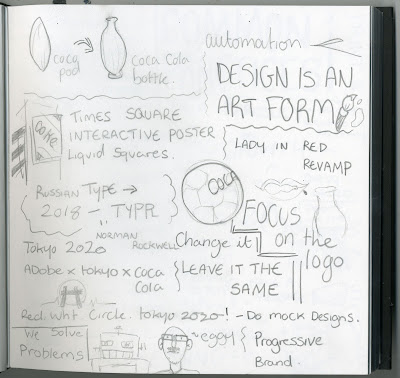 coca pod
Coca Cola bottle.
automation
DESIGN IS AN
ART FORM
Coke
TIMES SQUARE
INTERACTIVE POSTER
Liquid Squares.
LADY IN RED
REVAMP
COCA
RUSSIAN TYPE →
2018 - TYPR
NORMAN
ROCKWELL
FOCUS
on the
logo
Tokyo 2020
Change it
ADobe x tokyo x Coca
Cola
LEAVE IT THE
SAME
Red. Wht Circle. tokyo 2020-! - Do mock Designs.
We Solve
Problems
~eggy
Progressive
Brand.